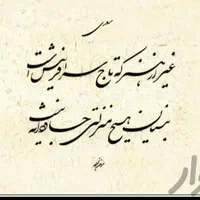 سعدی
غیر از هنر که تاج سر آفرینش است
بنیان هیچ منزلتی جاودانه نیست